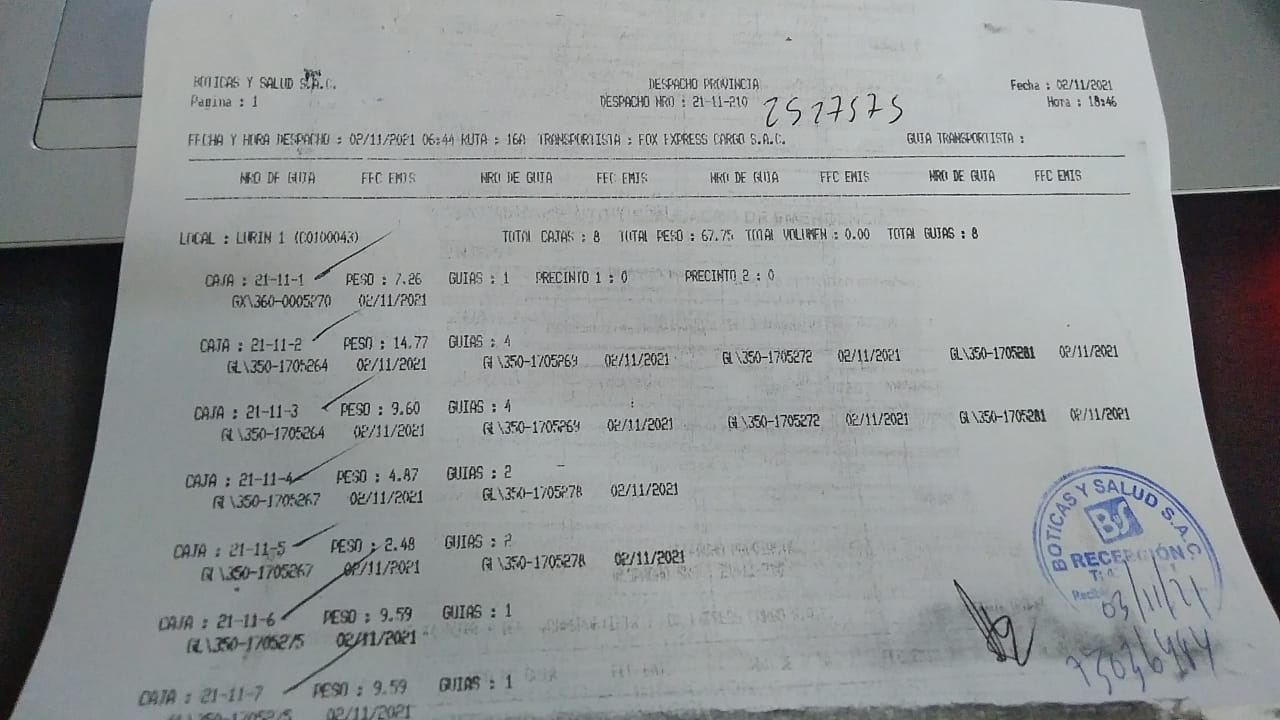 BOTICAS Y SALUD S.A.C. DESPACHO PROVINCIA Fecha : 02/11/2021
Pagina : 1 DESPACHO NRO : 21-11-210 2527575 Hora : 18:46
FECHA Y HORA DESPACHO : 02/11/2021 06:44 RUTA : 16A TRANSPORTISTA : FOX EXPRESS CARGO S.A.C. GUIA TRANSPORTISTA :
NRO DE GUIA FEC EMIS NRO DE GUIA FEC EMIS NRO DE GUIA FEC EMIS NRO DE GUIA FEC EMIS
LOCAL : LURIN 1 (C0100043) TOTAL CAJAS : 8 TOTAL PESO : 67.75 TOTAL VOLUMEN : 0.00 TOTAL GUIAS : 8
CAJA : 21-11-1 PESO : 7.26 GUIAS : 1 PRECINTO 1 : 0 PRECINTO 2 : 0
GX\360-0005270 02/11/2021
CAJA : 21-11-2 PESO : 14.77 GUIAS : 4
GL\350-1705264 02/11/2021 GL\350-1705269 02/11/2021 GL\350-1705272 02/11/2021 GL\350-1705281 02/11/2021
CAJA : 21-11-3 PESO : 9.60 GUIAS : 4
GL\350-1705264 02/11/2021 GL\350-1705269 02/11/2021 GL\350-1705272 02/11/2021 GL\350-1705281 02/11/2021
CAJA : 21-11-4 PESO : 4.87 GUIAS : 2
GL\350-1705267 02/11/2021 GL\350-1705278 02/11/2021
CAJA : 21-11-5 PESO : 2.48 GUIAS : 2
GL\350-1705267 02/11/2021 GL\350-1705278 02/11/2021
CAJA : 21-11-6 PESO : 9.59 GUIAS : 1
GL\350-1705275 02/11/2021
CAJA : 21-11-7 PESO : 9.59 GUIAS : 1
GL\350-1705275 02/11/2021
BOTICAS Y SALUD S.A.C.
BS
RECEPCIÓN
03/11/21